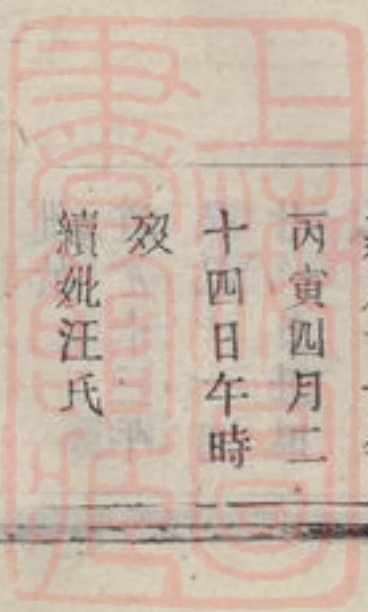 丙寅四月二
十四日午時
殁
續妣汪氏